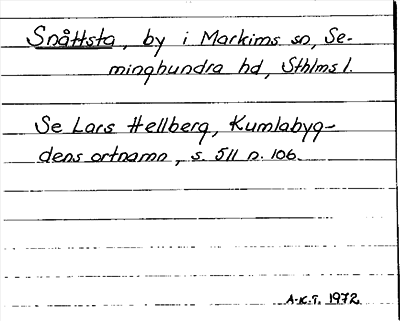 Snåttsta, by i Markims sn, Se-
minghundra hd, Sthlms l.
Se Lars Hellberg, Kumlabyg-
dens ortnamn, s. 511 n. 106.
A-K.T. 1972